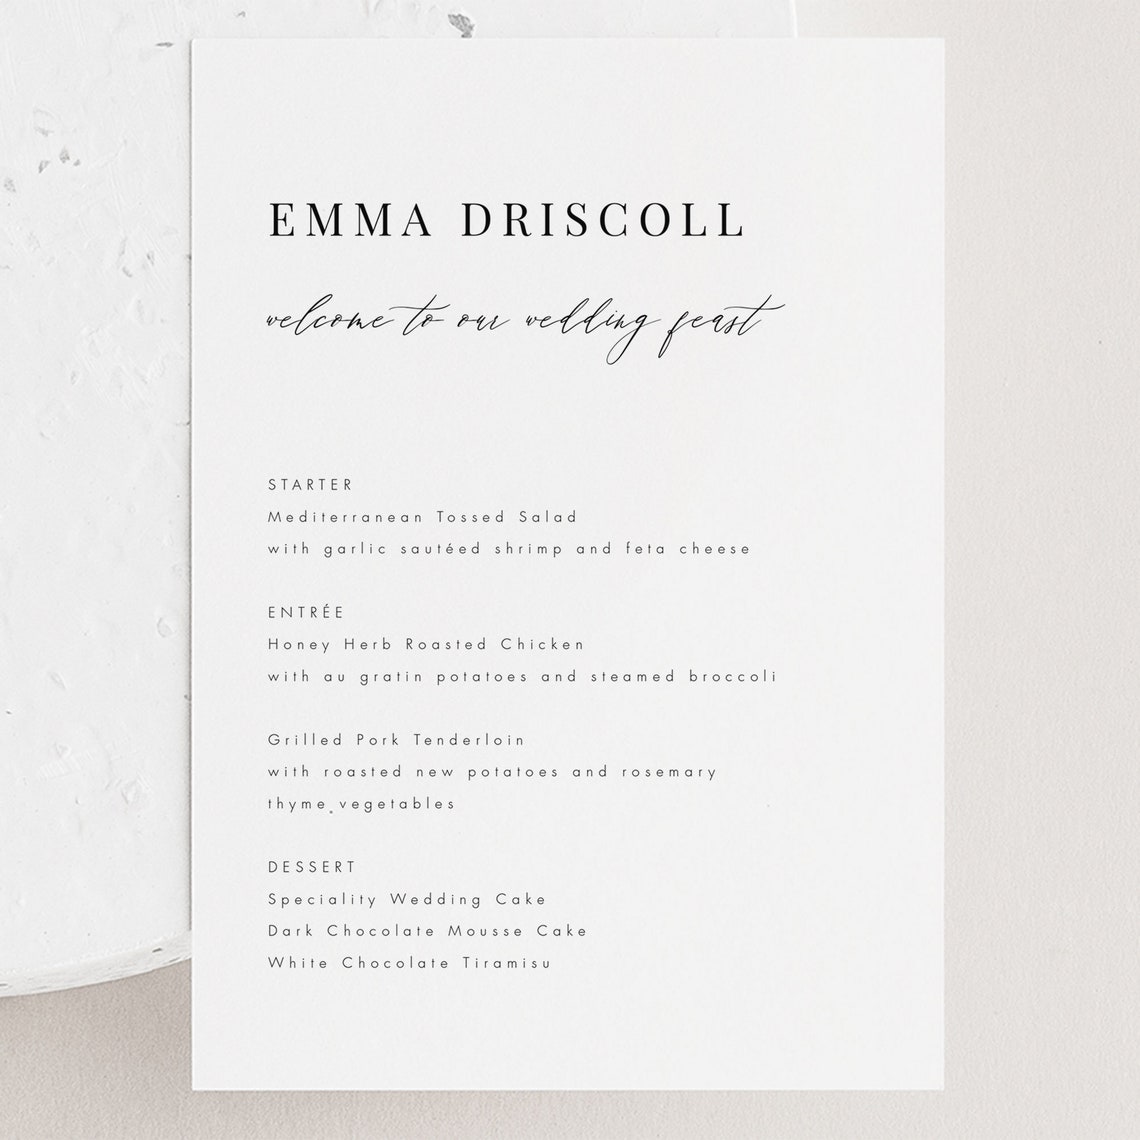 EMMA DRISCOLL
welcome to our wedding feast
STARTER
Mediterranean Tossed Salad
with garlic sautéed shrimp and feta cheese
ENTRÉE
Honey Herb Roasted Chicken
with au gratin potatoes and steamed broccoli
Grilled Pork Tenderloin
with roasted new potatoes and rosemary
thyme vegetables
DESSERT
Speciality Wedding Cake
Dark Chocolate Mousse Cake
White Chocolate Tiramisu